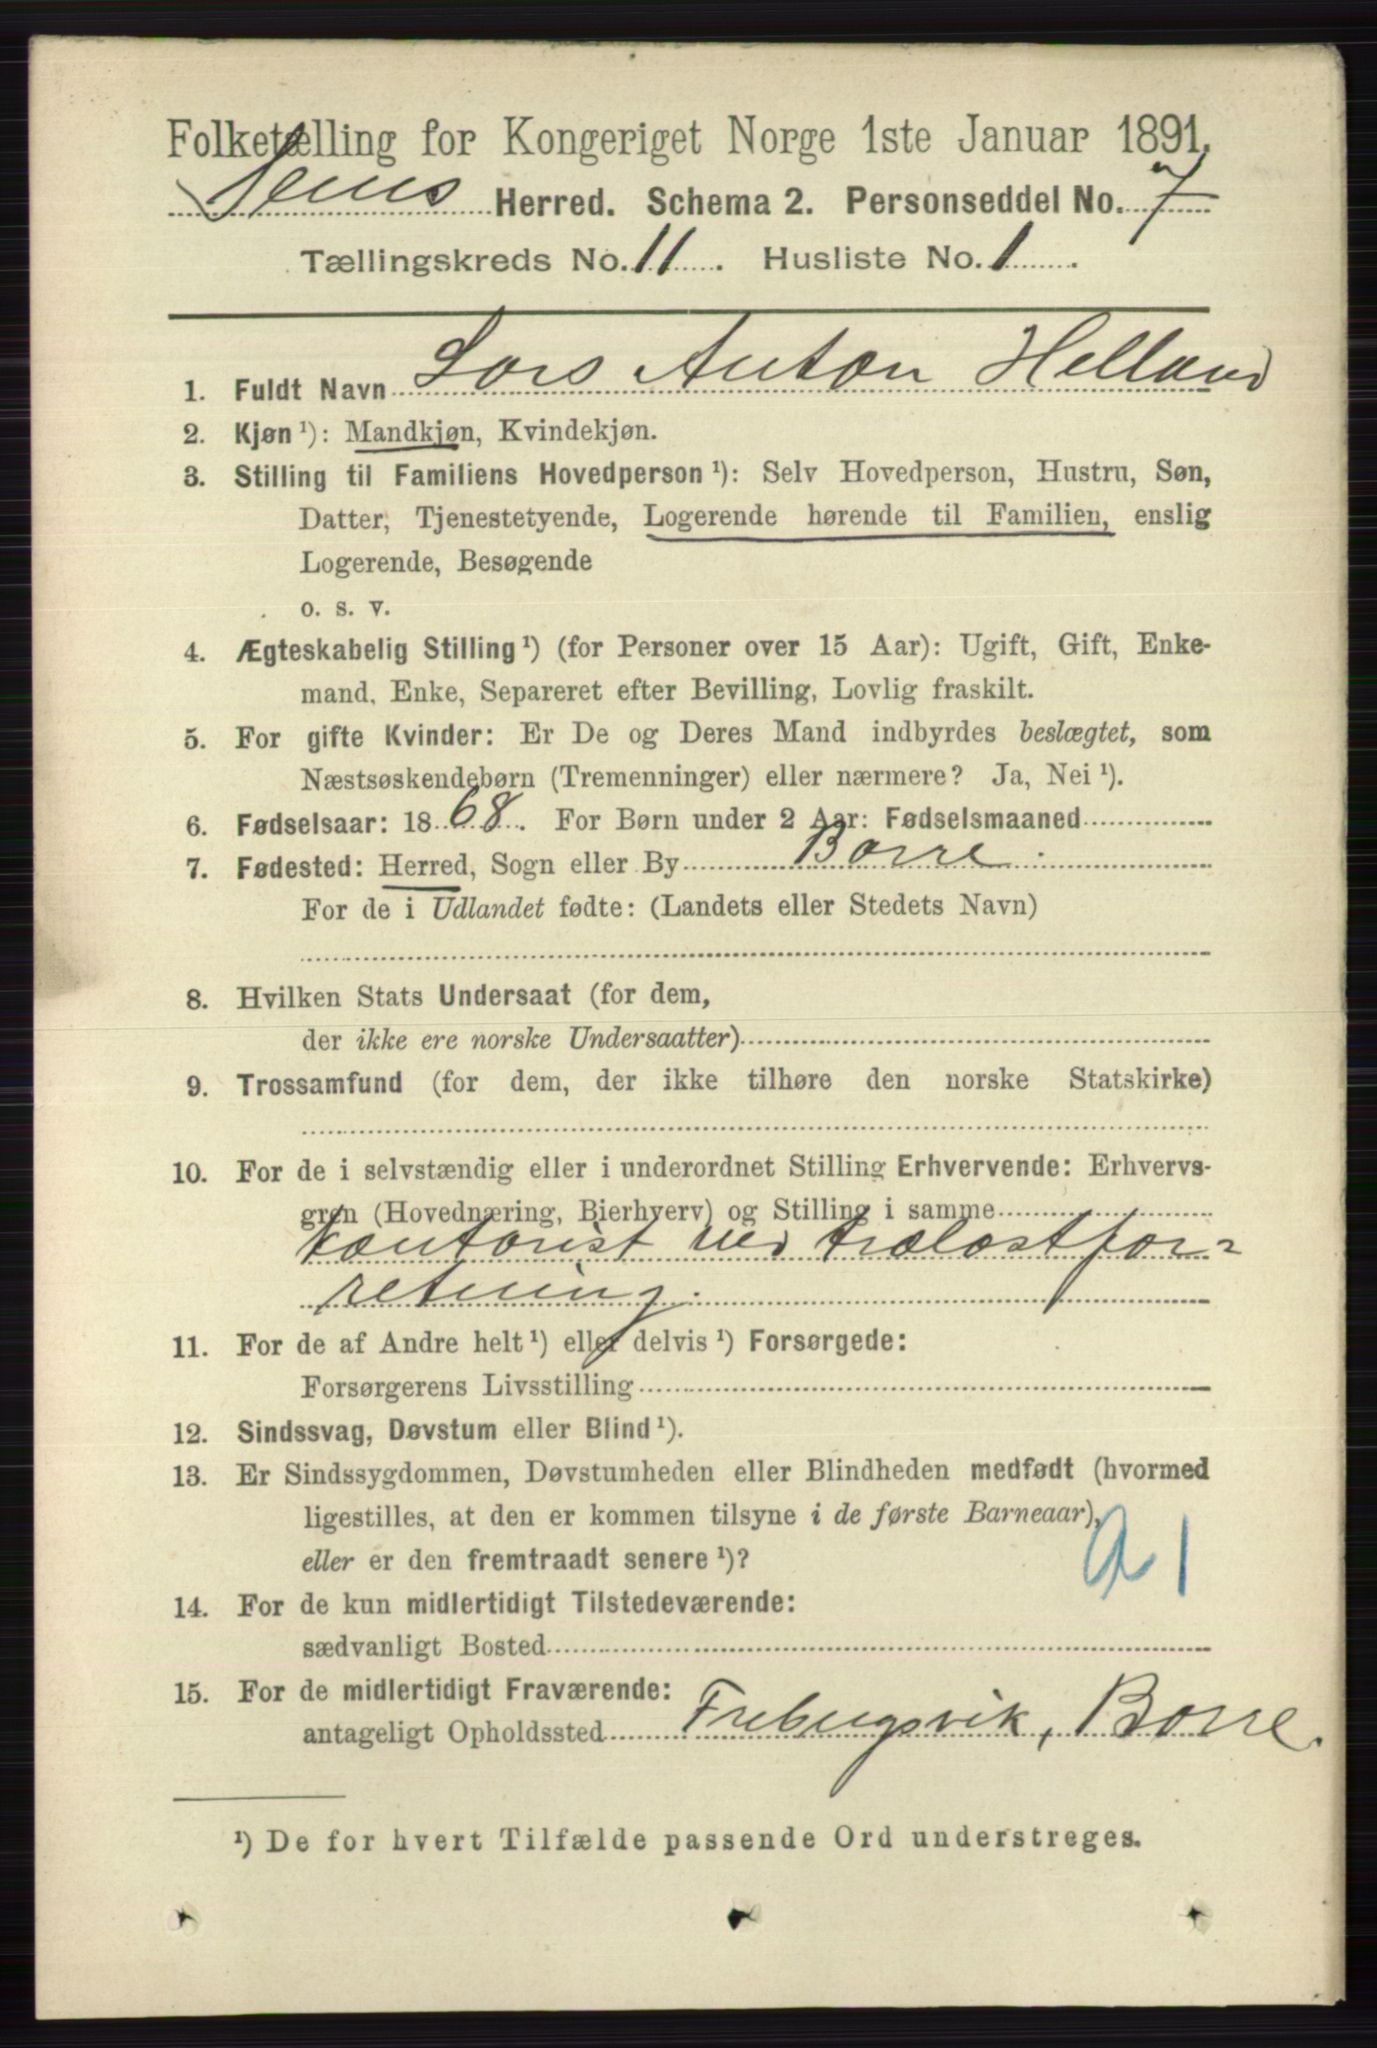 Folketælling for Kongeriget Norge 1ste Januar 1891.
Sems Herred. Schema 2. Personseddel No. 7
Tællingskreds No. 11. Husliste No. 1.
1. Fuldt Navn Lars Anton Helland
2. Kjøn ¹): Mandkjøn, Kvindekjøn.
3. Stilling til Familiens Hovedperson ¹): Selv Hovedperson, Hustru, Søn,
Datter, Tjenestetyende, Logerende hørende til Familien, enslig
Logerende, Besøgende
o. s. v.
4. Ægteskabelig Stilling ¹) (for Personer over 15 Aar): Ugift, Gift, Enke-
mand, Enke, Separeret efter Bevilling, Lovlig fraskilt.
5. For gifte Kvinder: Er De og Deres Mand indbyrdes beslægtet, som
Næstsøskendebørn (Tremenninger) eller nærmere? Ja, Nei ¹).
6. Fødselsaar: 1868. For Børn under 2 Aar: Fødselsmaaned
7. Fødested: Herred, Sogn eller By Borre.
For de i Udlandet fødte: (Landets eller Stedets Navn)
8. Hvilken Stats Undersaat (for dem,
der ikke ere norske Undersaatter)
9. Trossamfund (for dem, der ikke tilhøre den norske Statskirke)
10. For de i selvstændig eller i underordnet Stilling Erhvervende: Erhvervs-
gren (Hovednæring, Bierhverv) og Stilling i samme
Kontorist ved trælastfor-
retning.
11. For de af Andre helt ¹) eller delvis ¹) Forsørgede:
Forsørgerens Livsstilling
12. Sindssvag, Døvstum eller Blind ¹).
13. Er Sindssygdommen, Døvstumheden eller Blindheden medfødt (hvormed
ligestilles, at den er kommen tilsyne i de første Barneaar),
eller er den fremtraadt senere ¹)?
14. For de kun midlertidigt Tilstedeværende:
sædvanligt Bosted
15. For de midlertidigt Fraværende:
antageligt Opholdssted Frebergsvik, Borre.
¹) De for hvert Tilfælde passende Ord understreges.